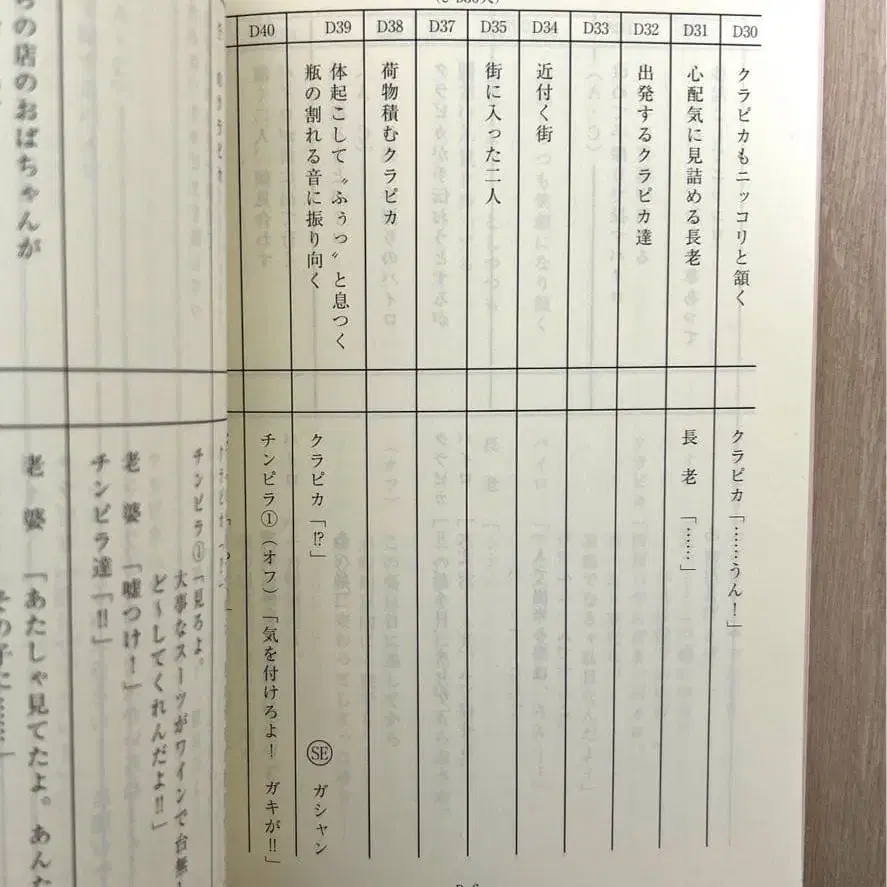 D30
クラピカもニッコリと頷く
クラピカ「……うん！」
D31
心配気に見詰める長老
長　老　「……」
D32
出発するクラピカ達
D33
D34
近付く街
D35
街に入った二人
D37
D38
荷物積むクラピカ
D39
体起こして〝ふぅっ〟と息つく
瓶の割れる音に振り向く
SE　ガシャン
クラピカ「!?」
D40
チンピラ①（オフ）「気を付けろよ！　ガキが!!」
チンピラ①「見ろよ。
大事なスーツがワインで台無し
ど〜してくれんだよ!!」
老　婆　「嘘つけ！」
チンピラ達「!!」
ちの店のおばちゃんが
老　婆　「あたしゃ見てたよ。あんた